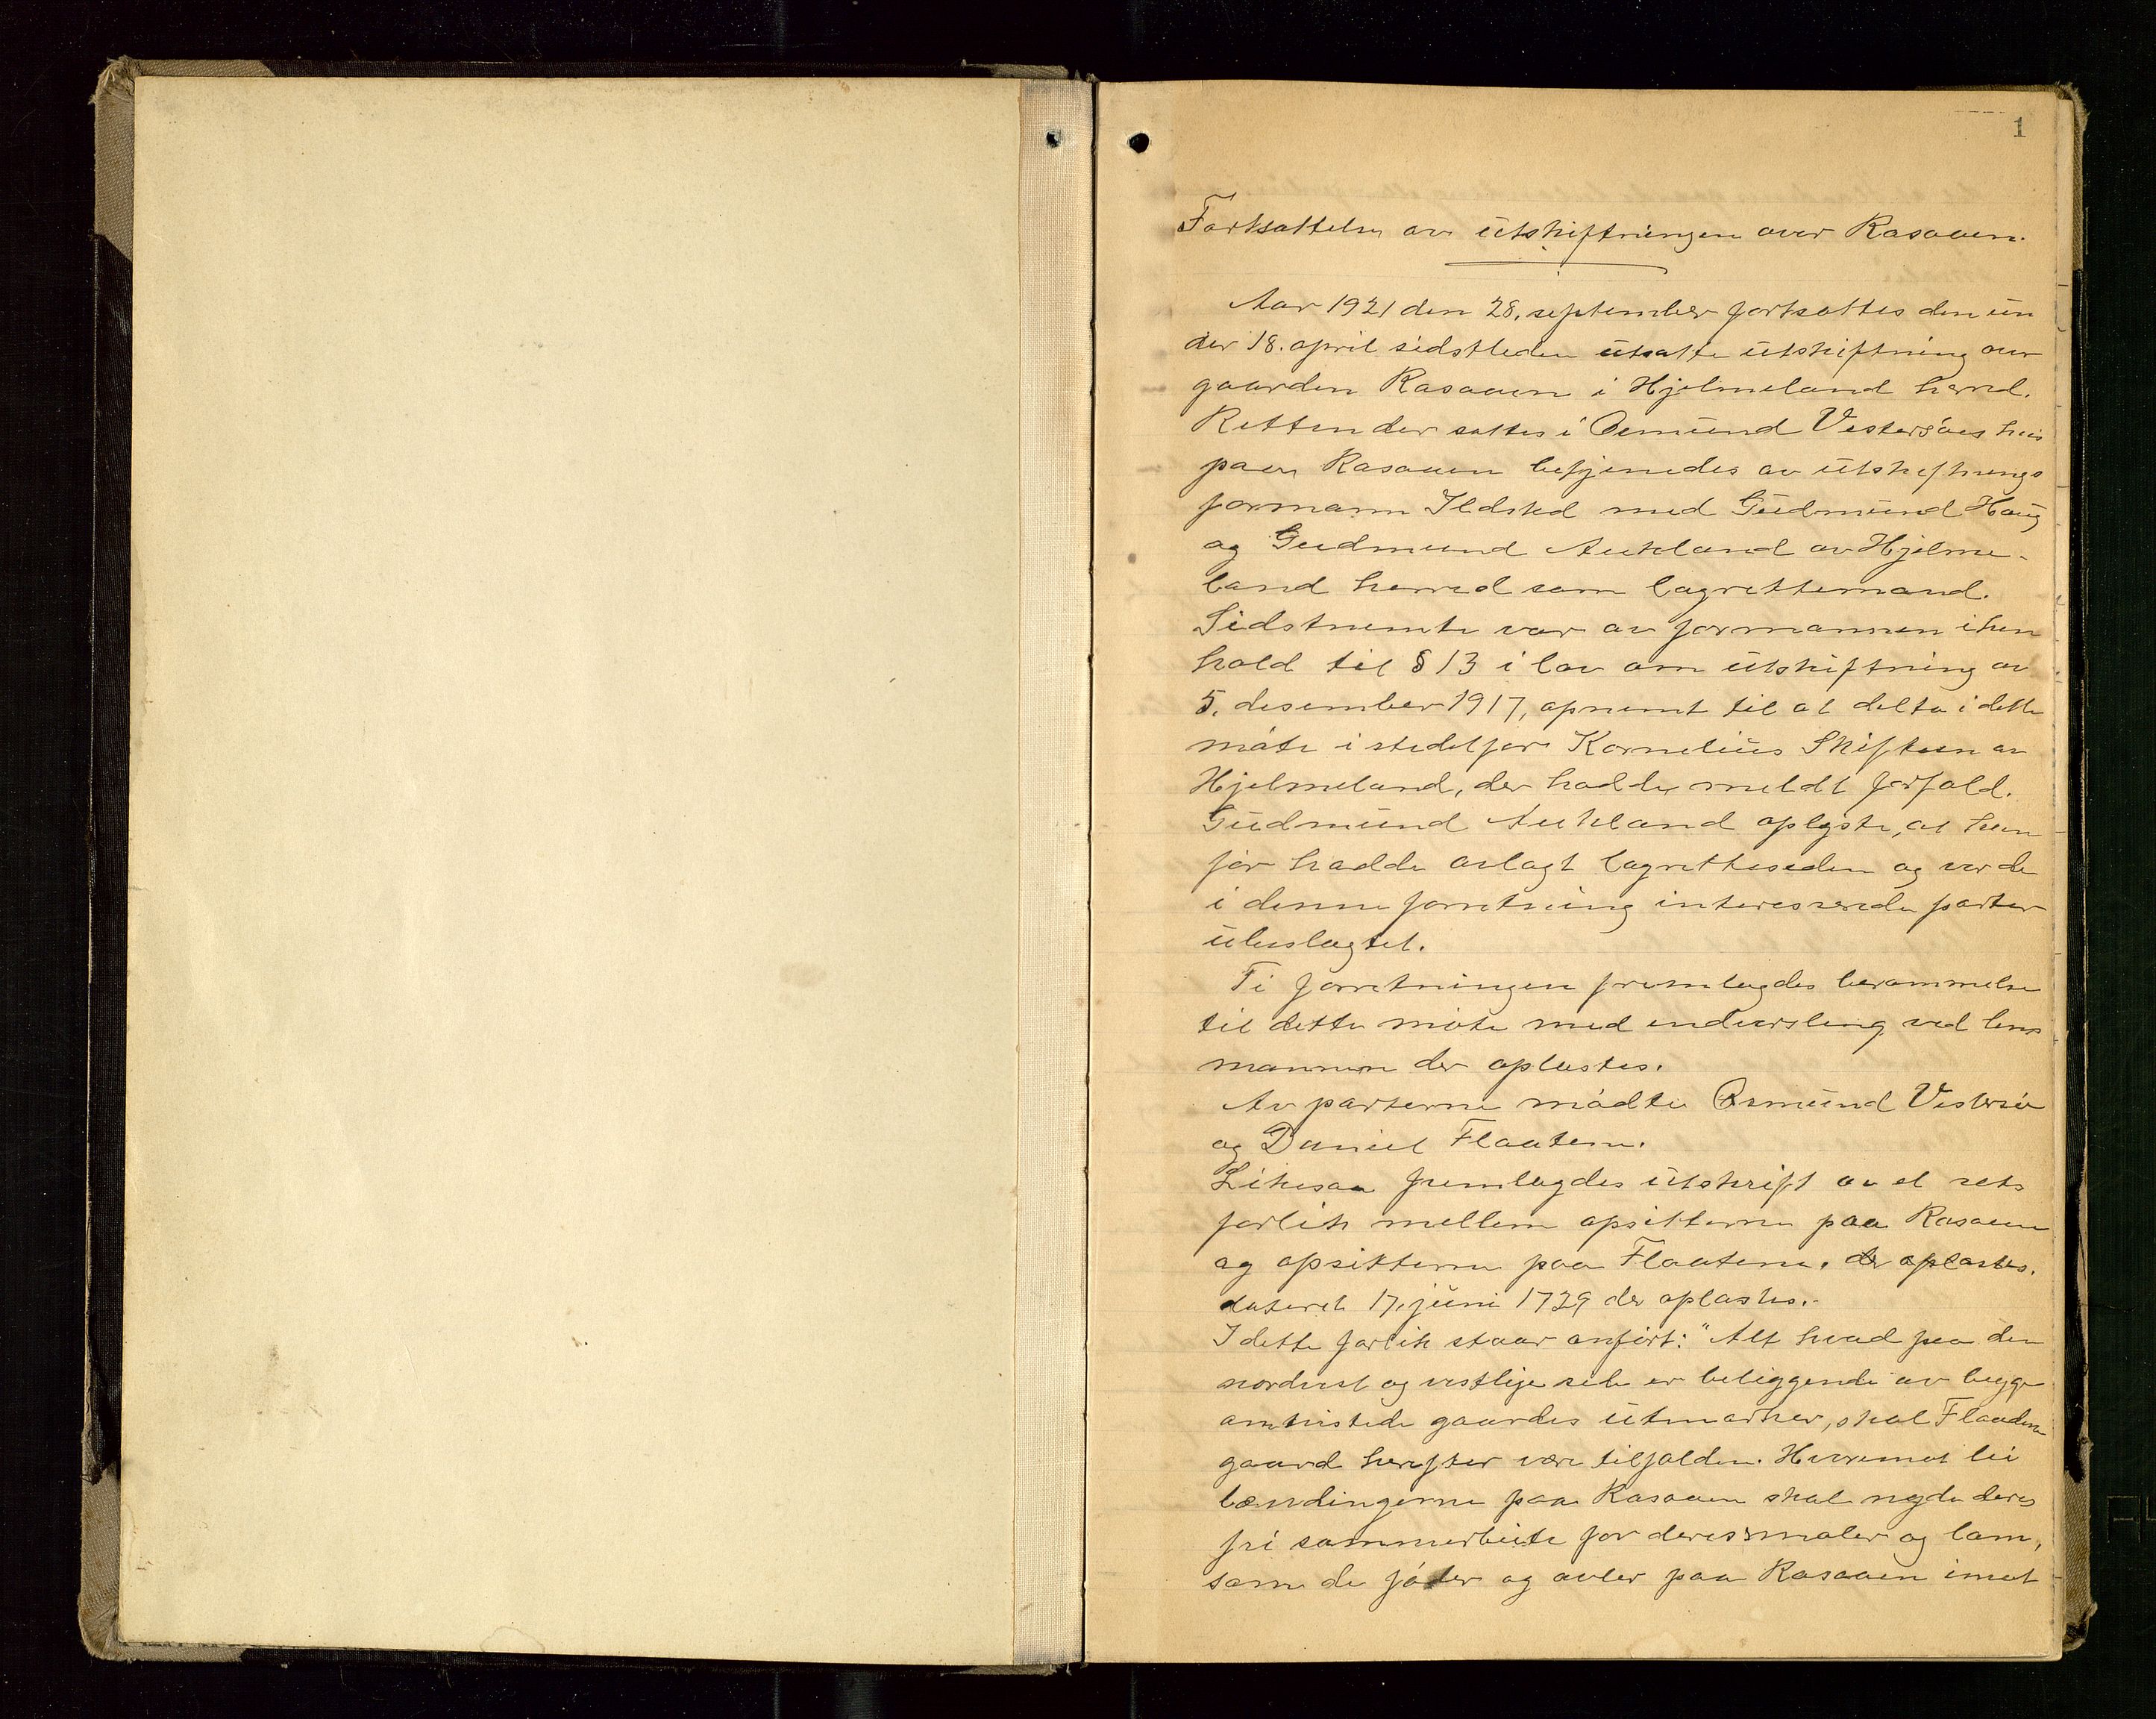 1
Fortsættelse av utskiftningen over Rasaaen.
Aar 1921 den 28. september fortsattes den un
der 18. april sidstleden utsatte utskiftning over
gaarden Rasaaen i Hjelmeland herred.
Retten der sattes i Osmund Vestersøes hus
paa Rasaaen betjenedes av utskiftnings
formann Ildsted med Gudmund Haug
og Gudmund Aukland av Hjelme-
land herred som lagrettemænd.
Sidstnemte var av formannen i hen
hold til § 13 i lov om utskiftning av
5. desember 1917, opnemt til at delta i dette
møte i stedet for Kornelius Skiftun av
Hjelmeland, der hadde meldt forfald.
Gudmund Aukland oplyste, at han
før hadde avlagt lagretteseden og var de
i denne forretning interesserede parter
ubeslægtet.
Ti forretningen fremlagdes berammelse
til dette møte med indvarsling ved lens
mannen der oplæstes.
Av parterne mødte Osmund Vestersø
og Daniel Flaatene.
Likesaa fremlagdes utskrift av et rets
forlik mellem opsitterne paa Rasaaen
og opsitterne paa Flaatene. der oplæstes.
dateret 17. juni 1729 der oplæstes.-
I dette forlik staar anført: "Alt hvad paa den
nordust og vestlige side er beliggende av begge
omtvistede gaardes utmarker, skal Flaadene
gaard herefter være tilfalden. Hvorimot lei
lændingerne paa Rasaaen skal nyde deres
fri sommerbeite for deres smaler og lam,
som de føder og avler paa Rasaaen imot